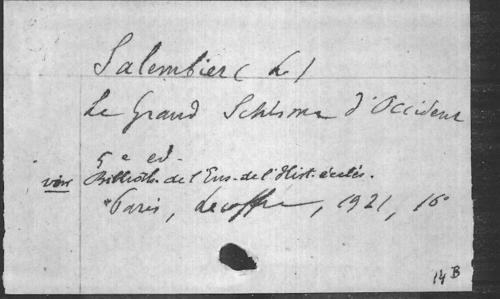 Salembier (L)
Le Grand Schisme d'Occident
5e ed.
voir Biblioth. de l'Ens. de l'Hist. ecclés.
Paris, Lecoffre, 1921, 16°
14 B